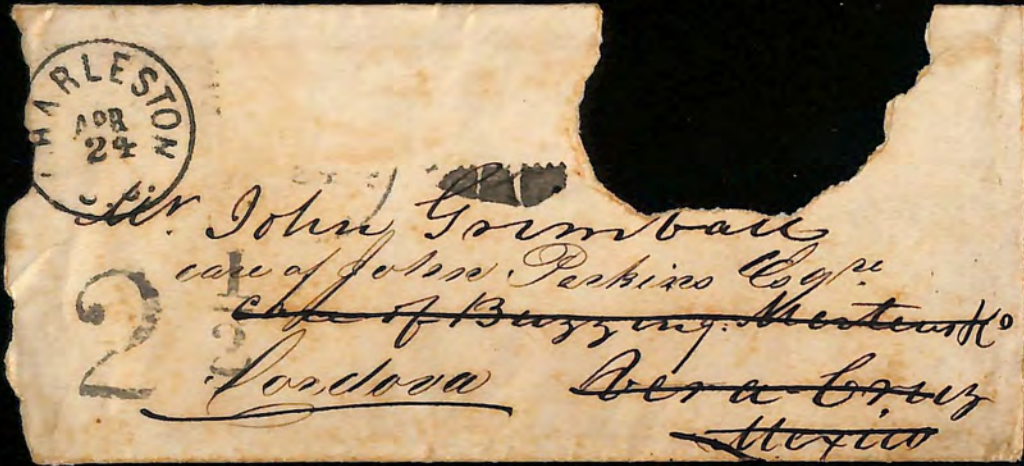 CHARLESTON
APR
24
Mr. John Grimball
care of John Perkins Esqre
care of Buzzing. Mertens & Co
Cordova
Vera Cruz
Mexico
2